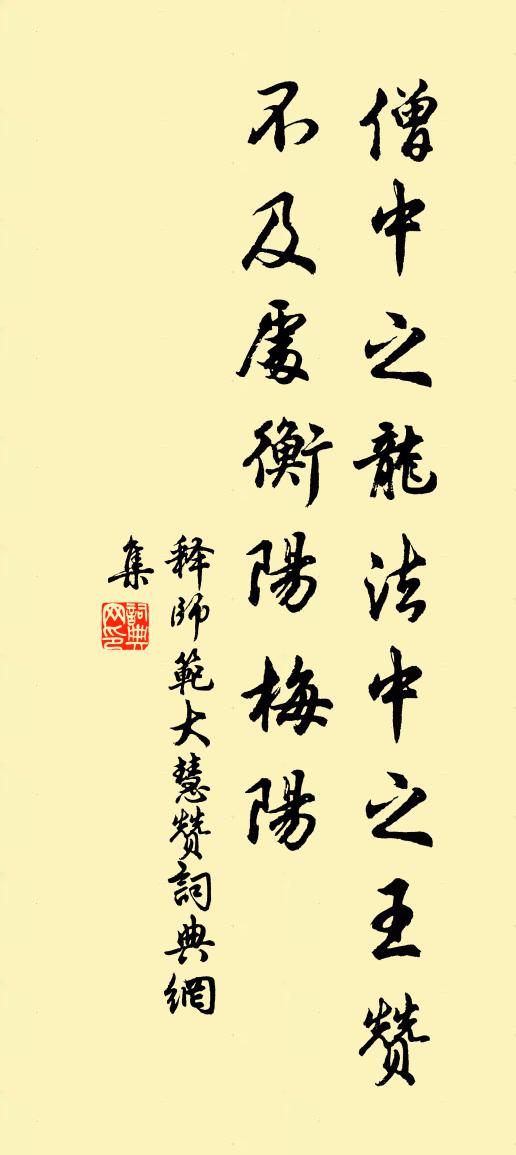 僧中之龍法中之王贊
不及處衡陽梅陽
释師範大慧贊詞典網
集
詞典网印